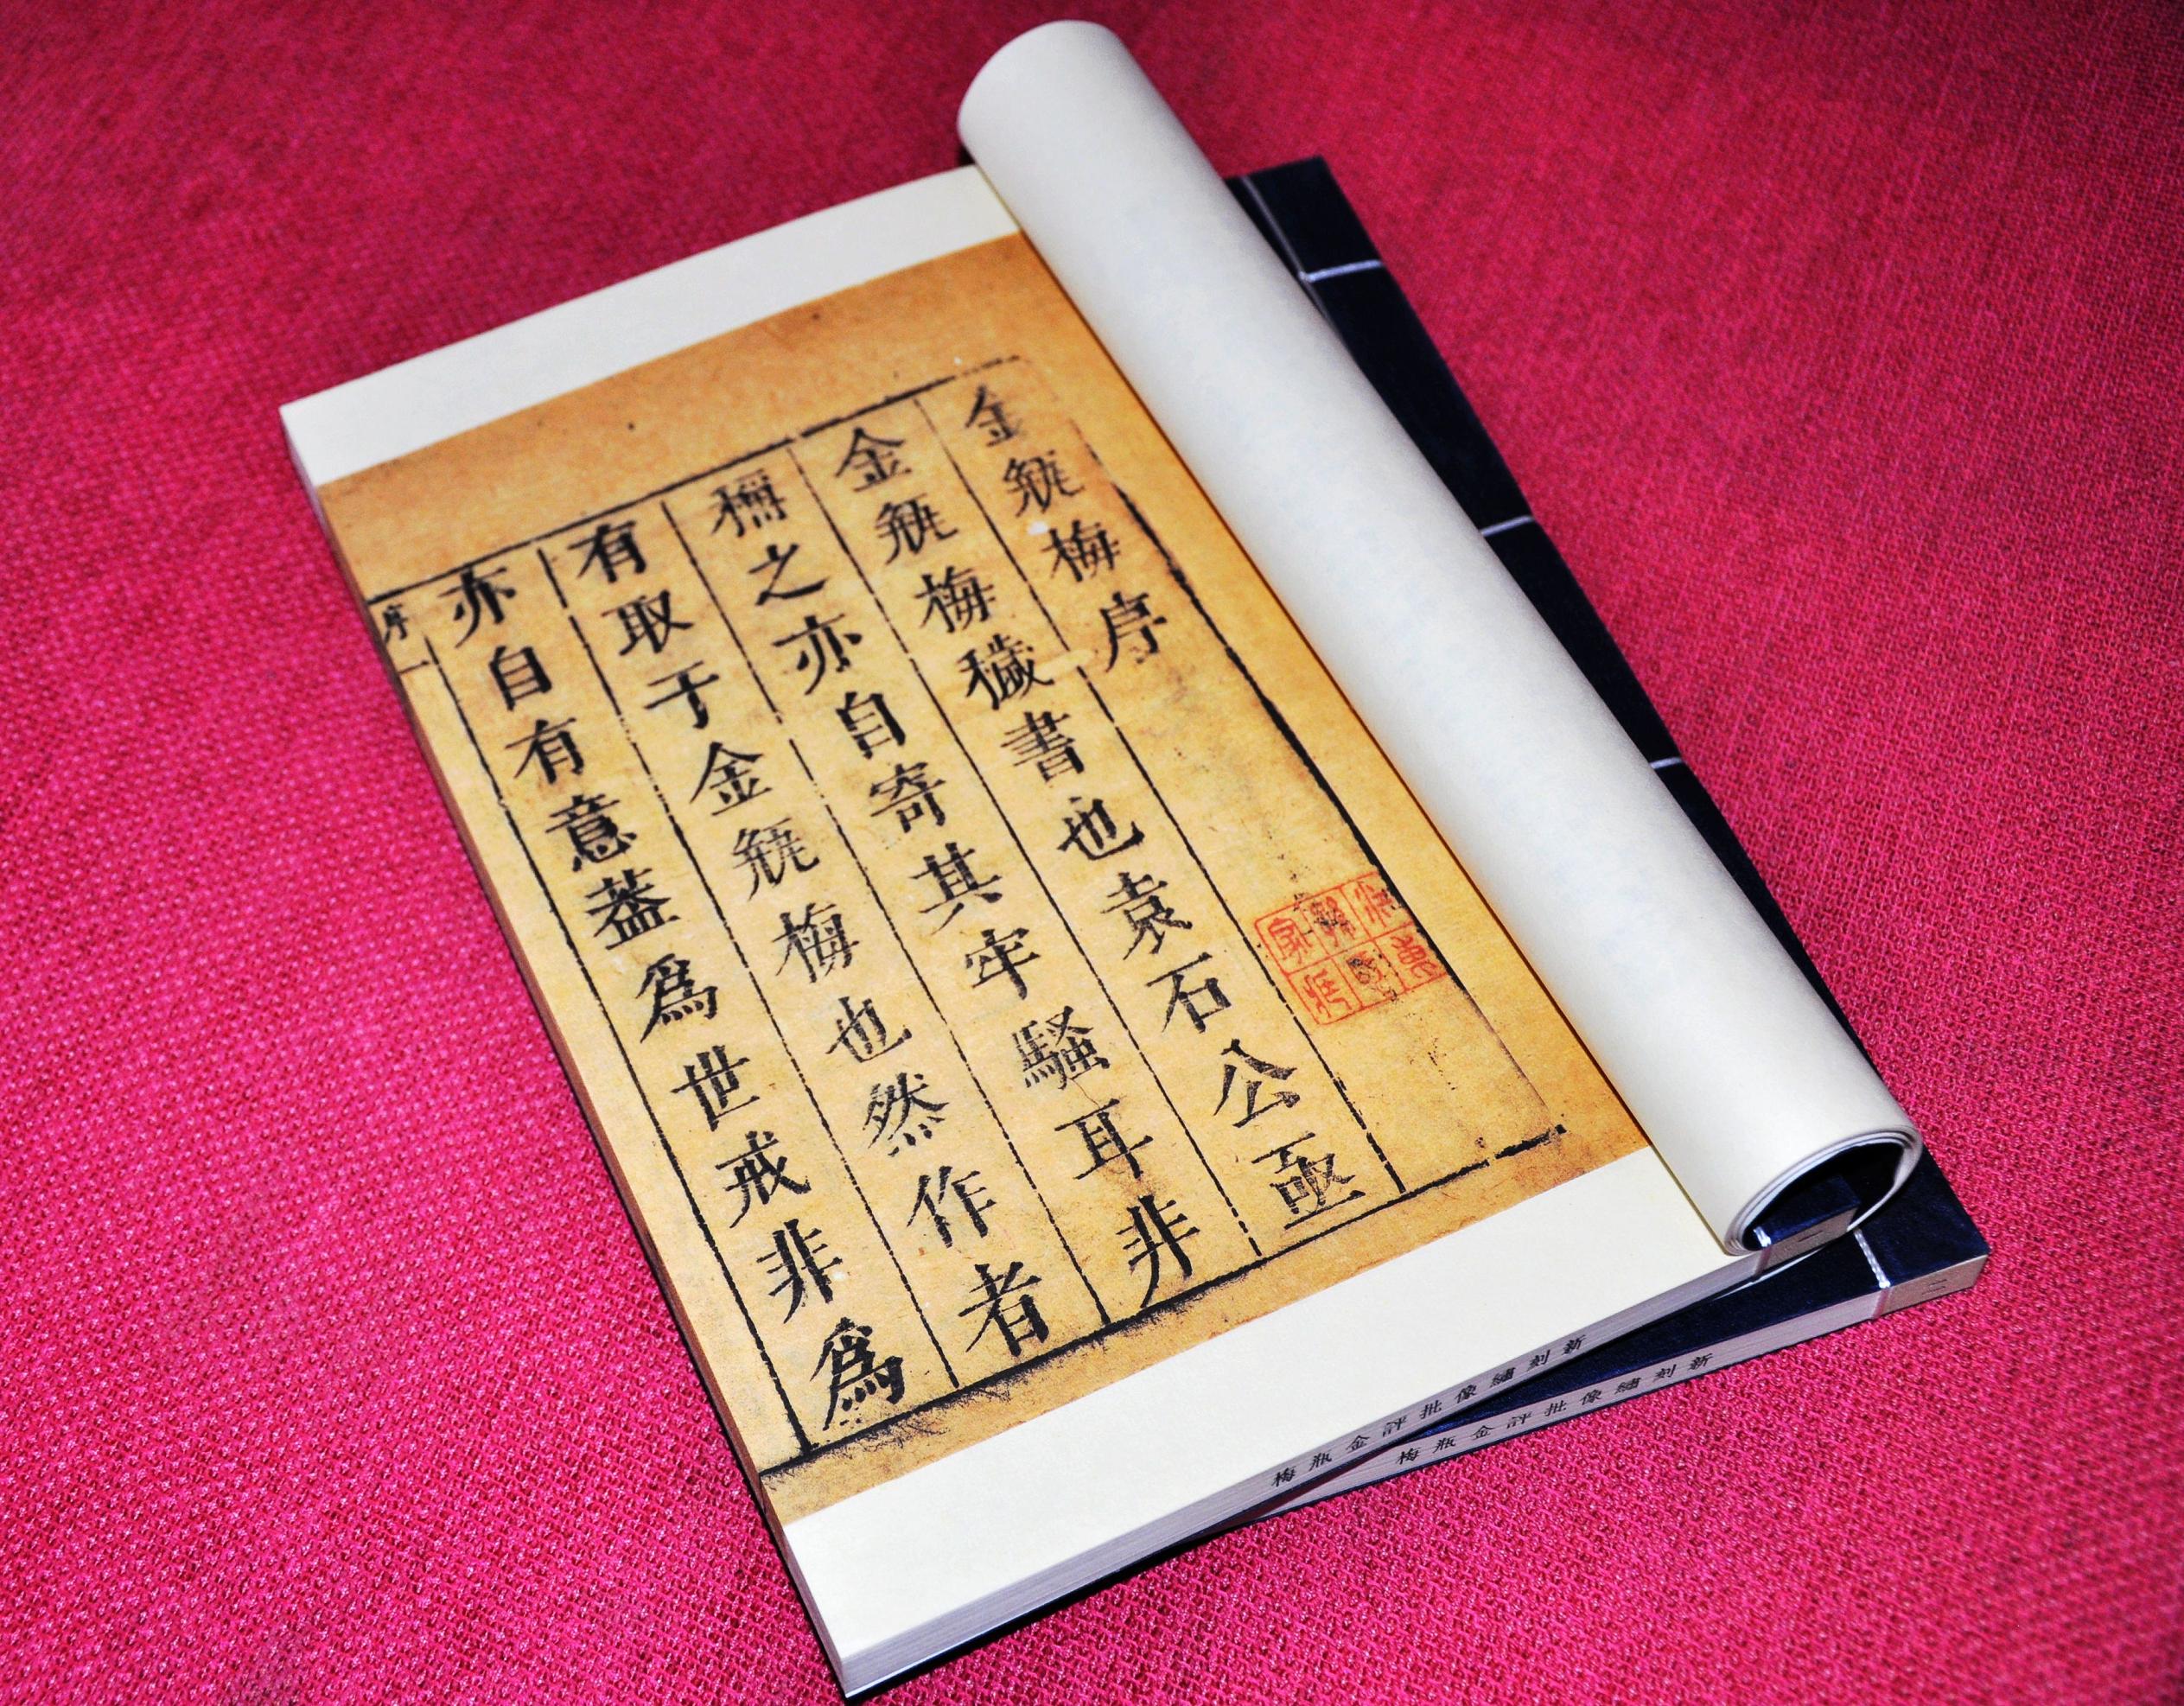 金瓶梅序
金瓶梅穢書也袁石公亟
稱之亦自寄其牢騷耳非
有取于金瓶梅也然作者
亦自有意蓋爲世戒非爲
序
一
新刻繡像批評金瓶梅
新刻繡像批評金瓶梅
二